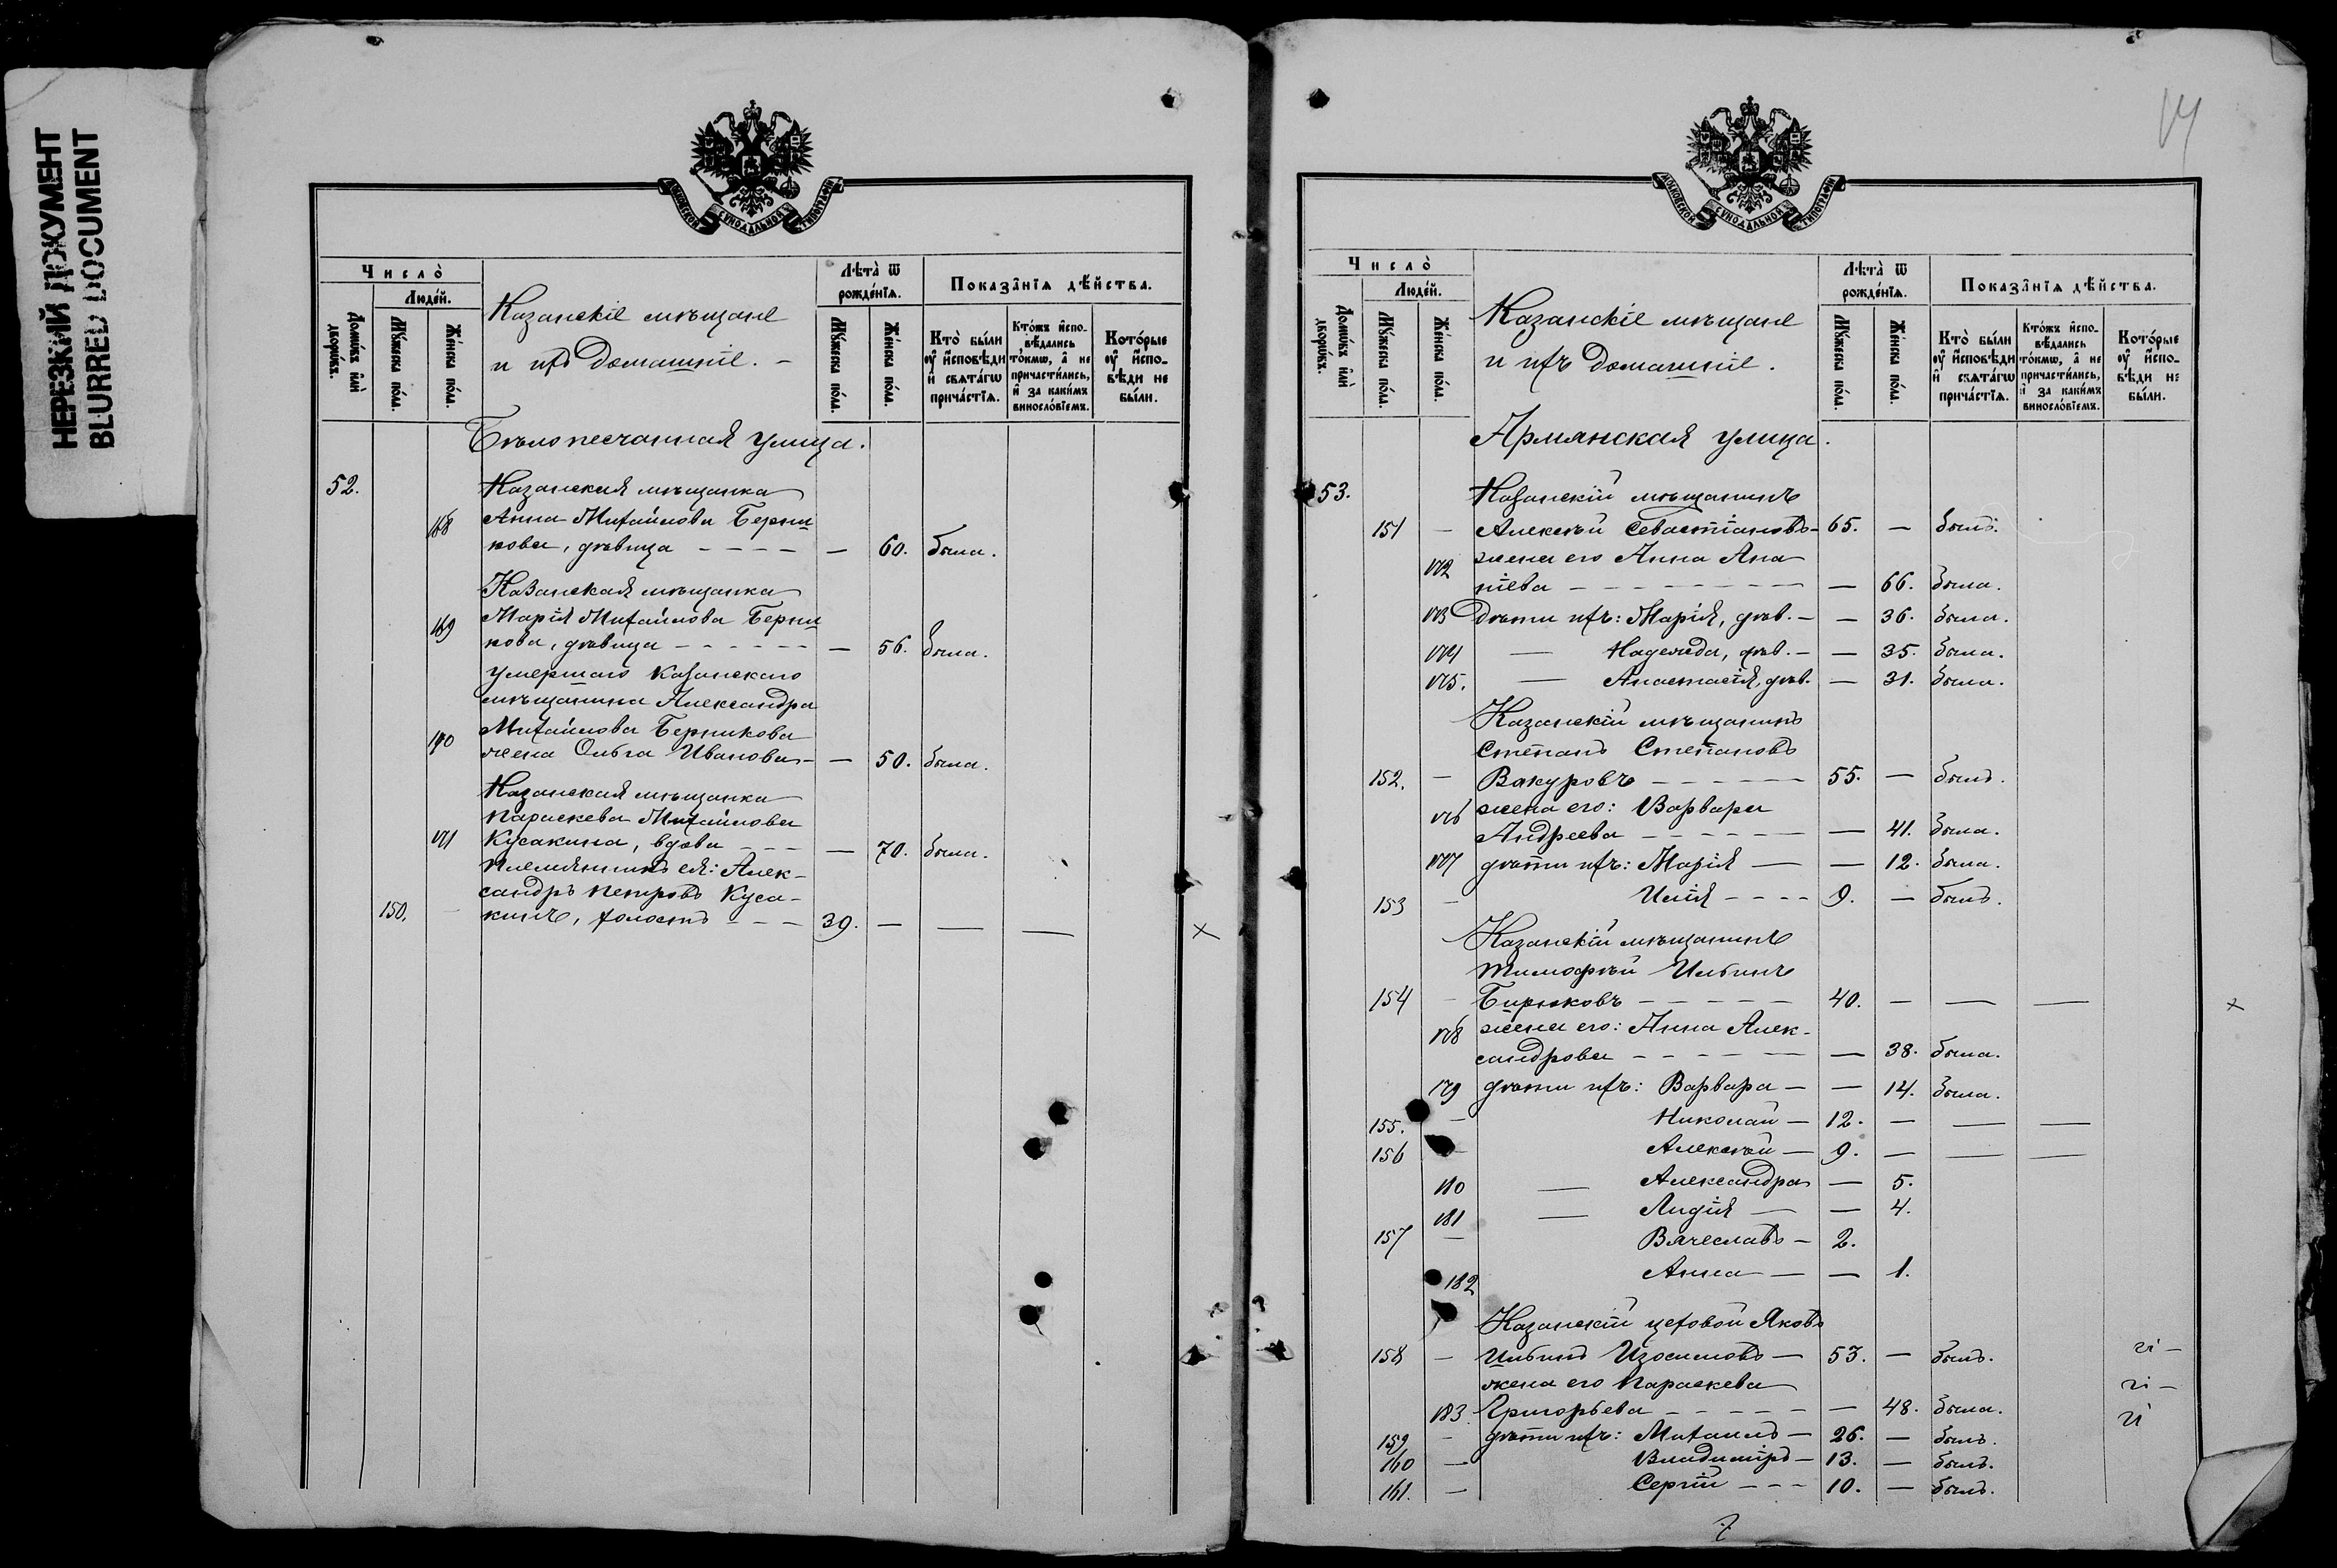 НЕРЕЗКИЙ ДОКУМЕНТ
BLURRED DOCUMENT
МОСКОВСКОЙ СУНОДАЛЬНОЙ ТИПОГРАФІИ
Число̀
Людéй.
Домѡ́въ и҆лѝ дворѡ́въ.
Мꙋ́жеска по́ла.
Же́нска по́ла.
Казанскіе мѣщане
и ихъ домашніе. –
Лѣта̀ ѿ рожде́нїѧ.
Мꙋ́жеска по́ла.
Же́нска по́ла.
Показа̑нїѧ дѣ́йства.
Кто̀ бы́ли оу҆ и҆сповѣди и҆ свѧта́гѡ причáстїѧ.
Кто́жъ и҆спо-
вѣдались
то́кмѡ, а҆ не
причасти́лись,
и҆ за каки́мъ
винослóвїемъ.
Кото́рые оу҆ и҆спо-
вѣди не бы́ли.
Бѣлопесчанная улица.
52. Казанская мѣщанка
168 Анна Михайлова Берни
кова, дѣвица – – – – — 60. была.
Казанская мѣщанка
169 Марія Михайлова Берни
кова, дѣвица – – – – – — 56. была.
Умершаго Казанскаго
мѣщанина Александра
170 Михайлова Берникова
жена Ольга Иванова – — 50. была.
Казанская мѣщанка
Параскева Михайлова
171 Кусакина, вдова – – – — 70. была.
Племянникъ ея: Алек-
сандръ Петровъ Куса-
150. – кинъ, холостъ – – – 39. — — — ×
14
МОСКОВСКОЙ СУНОДАЛЬНОЙ ТИПОГРАФІИ
Число̀
Людéй.
Домѡ́въ и҆лѝ дворѡ́въ.
Мꙋ́жеска по́ла.
Же́нска по́ла.
Казанскіе мѣщане
и ихъ домашніе.
Лѣта̀ ѿ рожде́нїѧ.
Мꙋ́жеска по́ла.
Же́нска по́ла.
Показа̑нїѧ дѣ́йства.
Кто̀ бы́ли оу҆ и҆сповѣди и҆ свѧта́гѡ причáстїѧ.
Кто́жъ и҆спо-
вѣдались
то́кмѡ, а҆ не
причасти́лись,
и҆ за каки́мъ
винослóвїемъ.
Кото́рые оу҆ и҆спо-
вѣди не бы́ли.
Армянская улица.
53. Казанскій мѣщанинъ
151 – Алексѣй Севастіановъ – 65. — былъ.
172 жена его Анна Ана
ніева – – – – – – — 66. была.
173 Дѣти ихъ: Марія, дѣв. – — 36. была.
174 — Надежда, дѣв. – — 35. была.
175. — Анастасія, дѣв. — 31. была.
Казанскій мѣщанинъ
Степанъ Степановъ
152. – Вакуровъ – – – – – 55. — былъ.
176 жена его: Варвара
Андреева – – – – – — 41. была.
177 дѣти ихъ: Марія — — 12. была.
153 – Илія – – – – 9. — былъ.
Казанскій мѣщанинъ
Тимофѣй Ильинъ
154 – Бирюковъ – – – – – 40. — — — ×
178 жена его: Анна Алек-
сандрова – – – – – — 38. была.
179 дѣти ихъ: Варвара – — 14. была.
155. – Николай – 12. — — —
156 – Алексѣй – 9. — — —
180 — Александра — 5.
181 — Лидія — — 4.
157 – Вячеславъ – 2.
182 Анна — — 1.
Казанскій цеховой Яковъ
158 – Ильинъ Изосимовъ – 53. — былъ.
жена его Параскева
183. Григорьева – – – – – — 48. была.
159 – дѣти ихъ: Михаилъ – 26. — былъ.
160 – Владиміръ – 13. — былъ.
161. – Сергій – – – 10. — былъ.